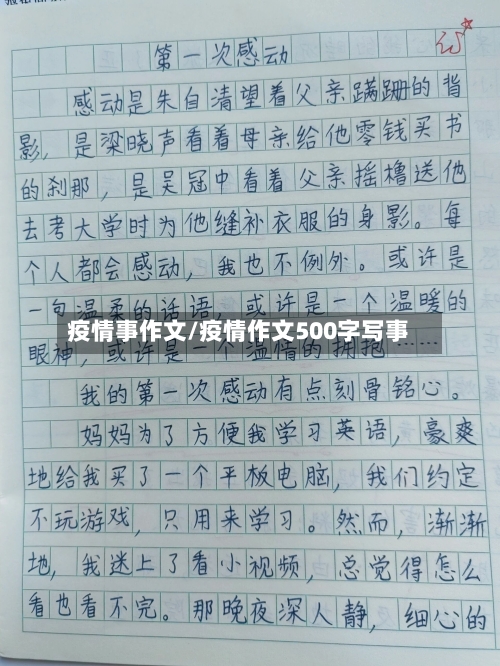 第一次感动
感动是朱自清望着父亲蹒跚的背
影，是梁晓声看着母亲给他零钱买书
的刹那，是吴冠中看着父亲摇橹送他
去考大学时为他缝补衣服的身影。每
个人都会感动，我也不例外。或许是
一句温柔的话语，或许是一个温暖的
疫情事作文/疫情作文500字写事
眼神，或许是一个温情的拥抱……
我的第一次感动有点刻骨铭心。
妈妈为了方便我学习英语，豪爽
地给我买了一个平板电脑，我们约定
不玩游戏，只用来学习。然而，渐渐
地，我迷上了看小视频，总觉得怎么
看也看不完。那晚夜深人静，细心的